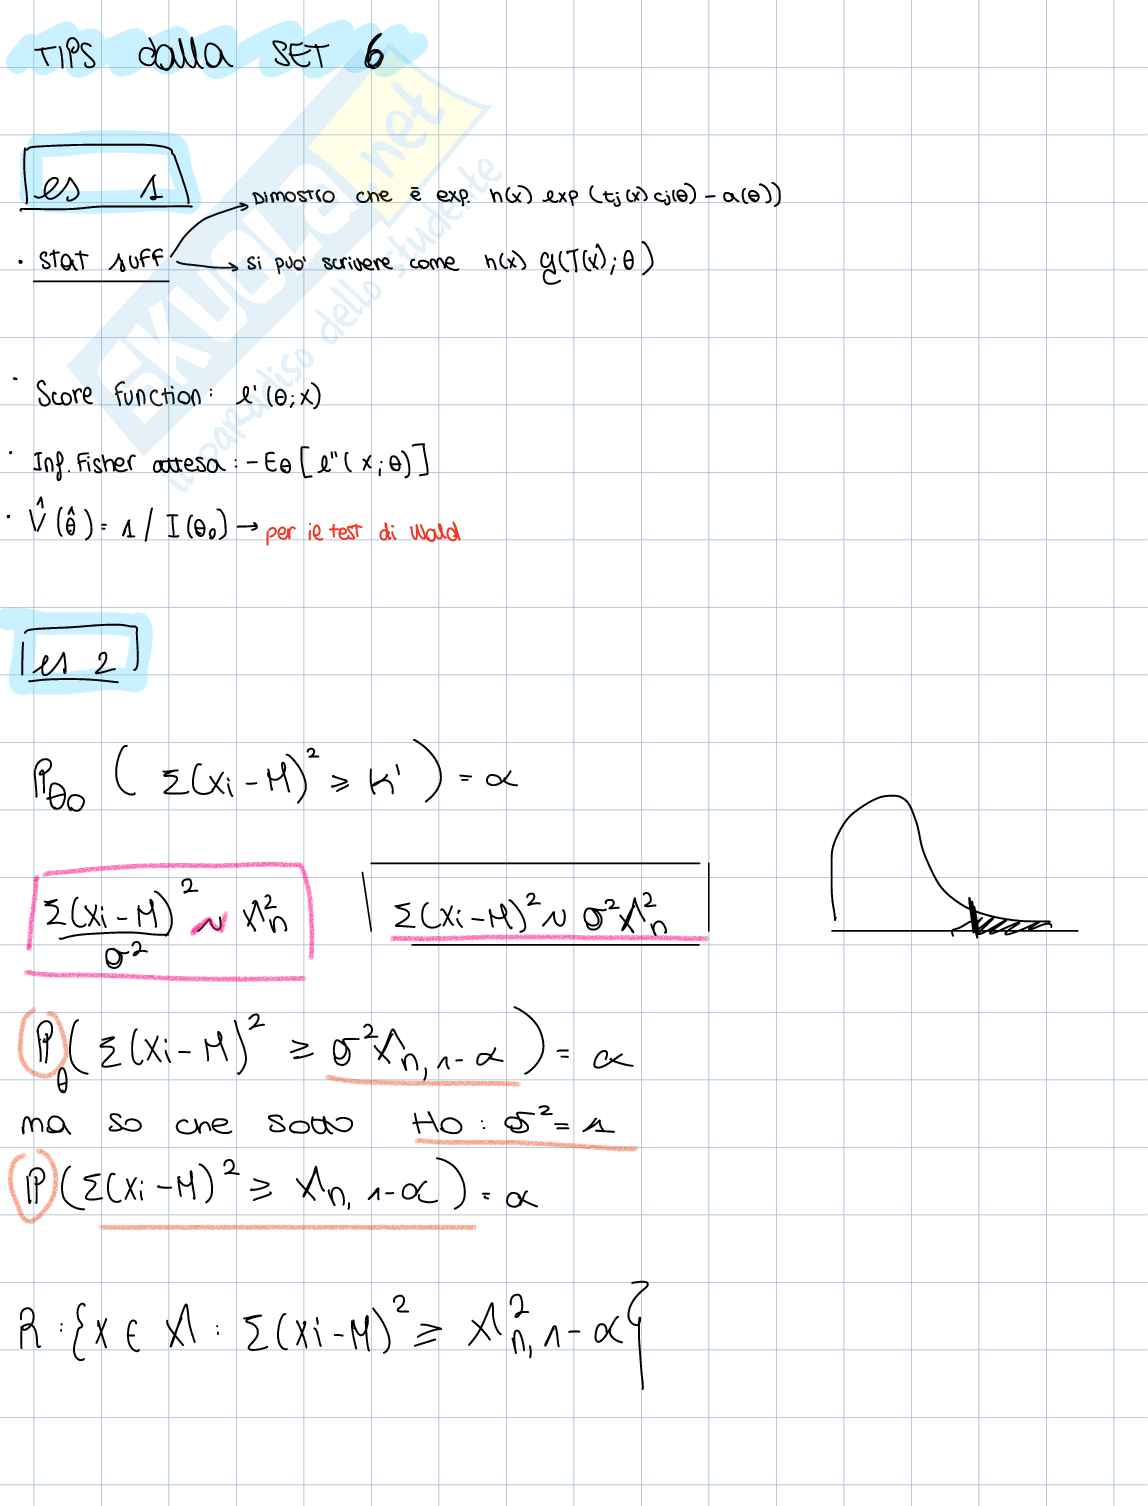 TIPS dalla SET 6
es 1
DIMOSTRO che è exp. h(x) exp (tj(x) cj(θ) - a(θ))
• stat suff
si può scrivere come h(x) g(T(x); θ)
• Score function: l'(θ; x)
• Inf. Fisher attesa: - Eθ [l''(x; θ)]
• V̂(θ̂) = 1 / I(θ₀) → per il test di Wald
es 2
Pθ₀ ( Σ(Xi - M)² ≥ K' ) = α
Σ(Xi - M)² / σ² ~ X²n
Σ(Xi - M)² ~ σ² X²n
ℙθ ( Σ(Xi - M)² ≥ σ² Xn, 1-α ) = α
ma so che sotto H0 : σ² = 1
ℙ ( Σ(Xi - M)² ≥ Xn, 1-α ) = α
R : { x ∈ X : Σ(Xi - M)² ≥ X²n, 1-α }
SKUOLA.net
il paradiso dello studente